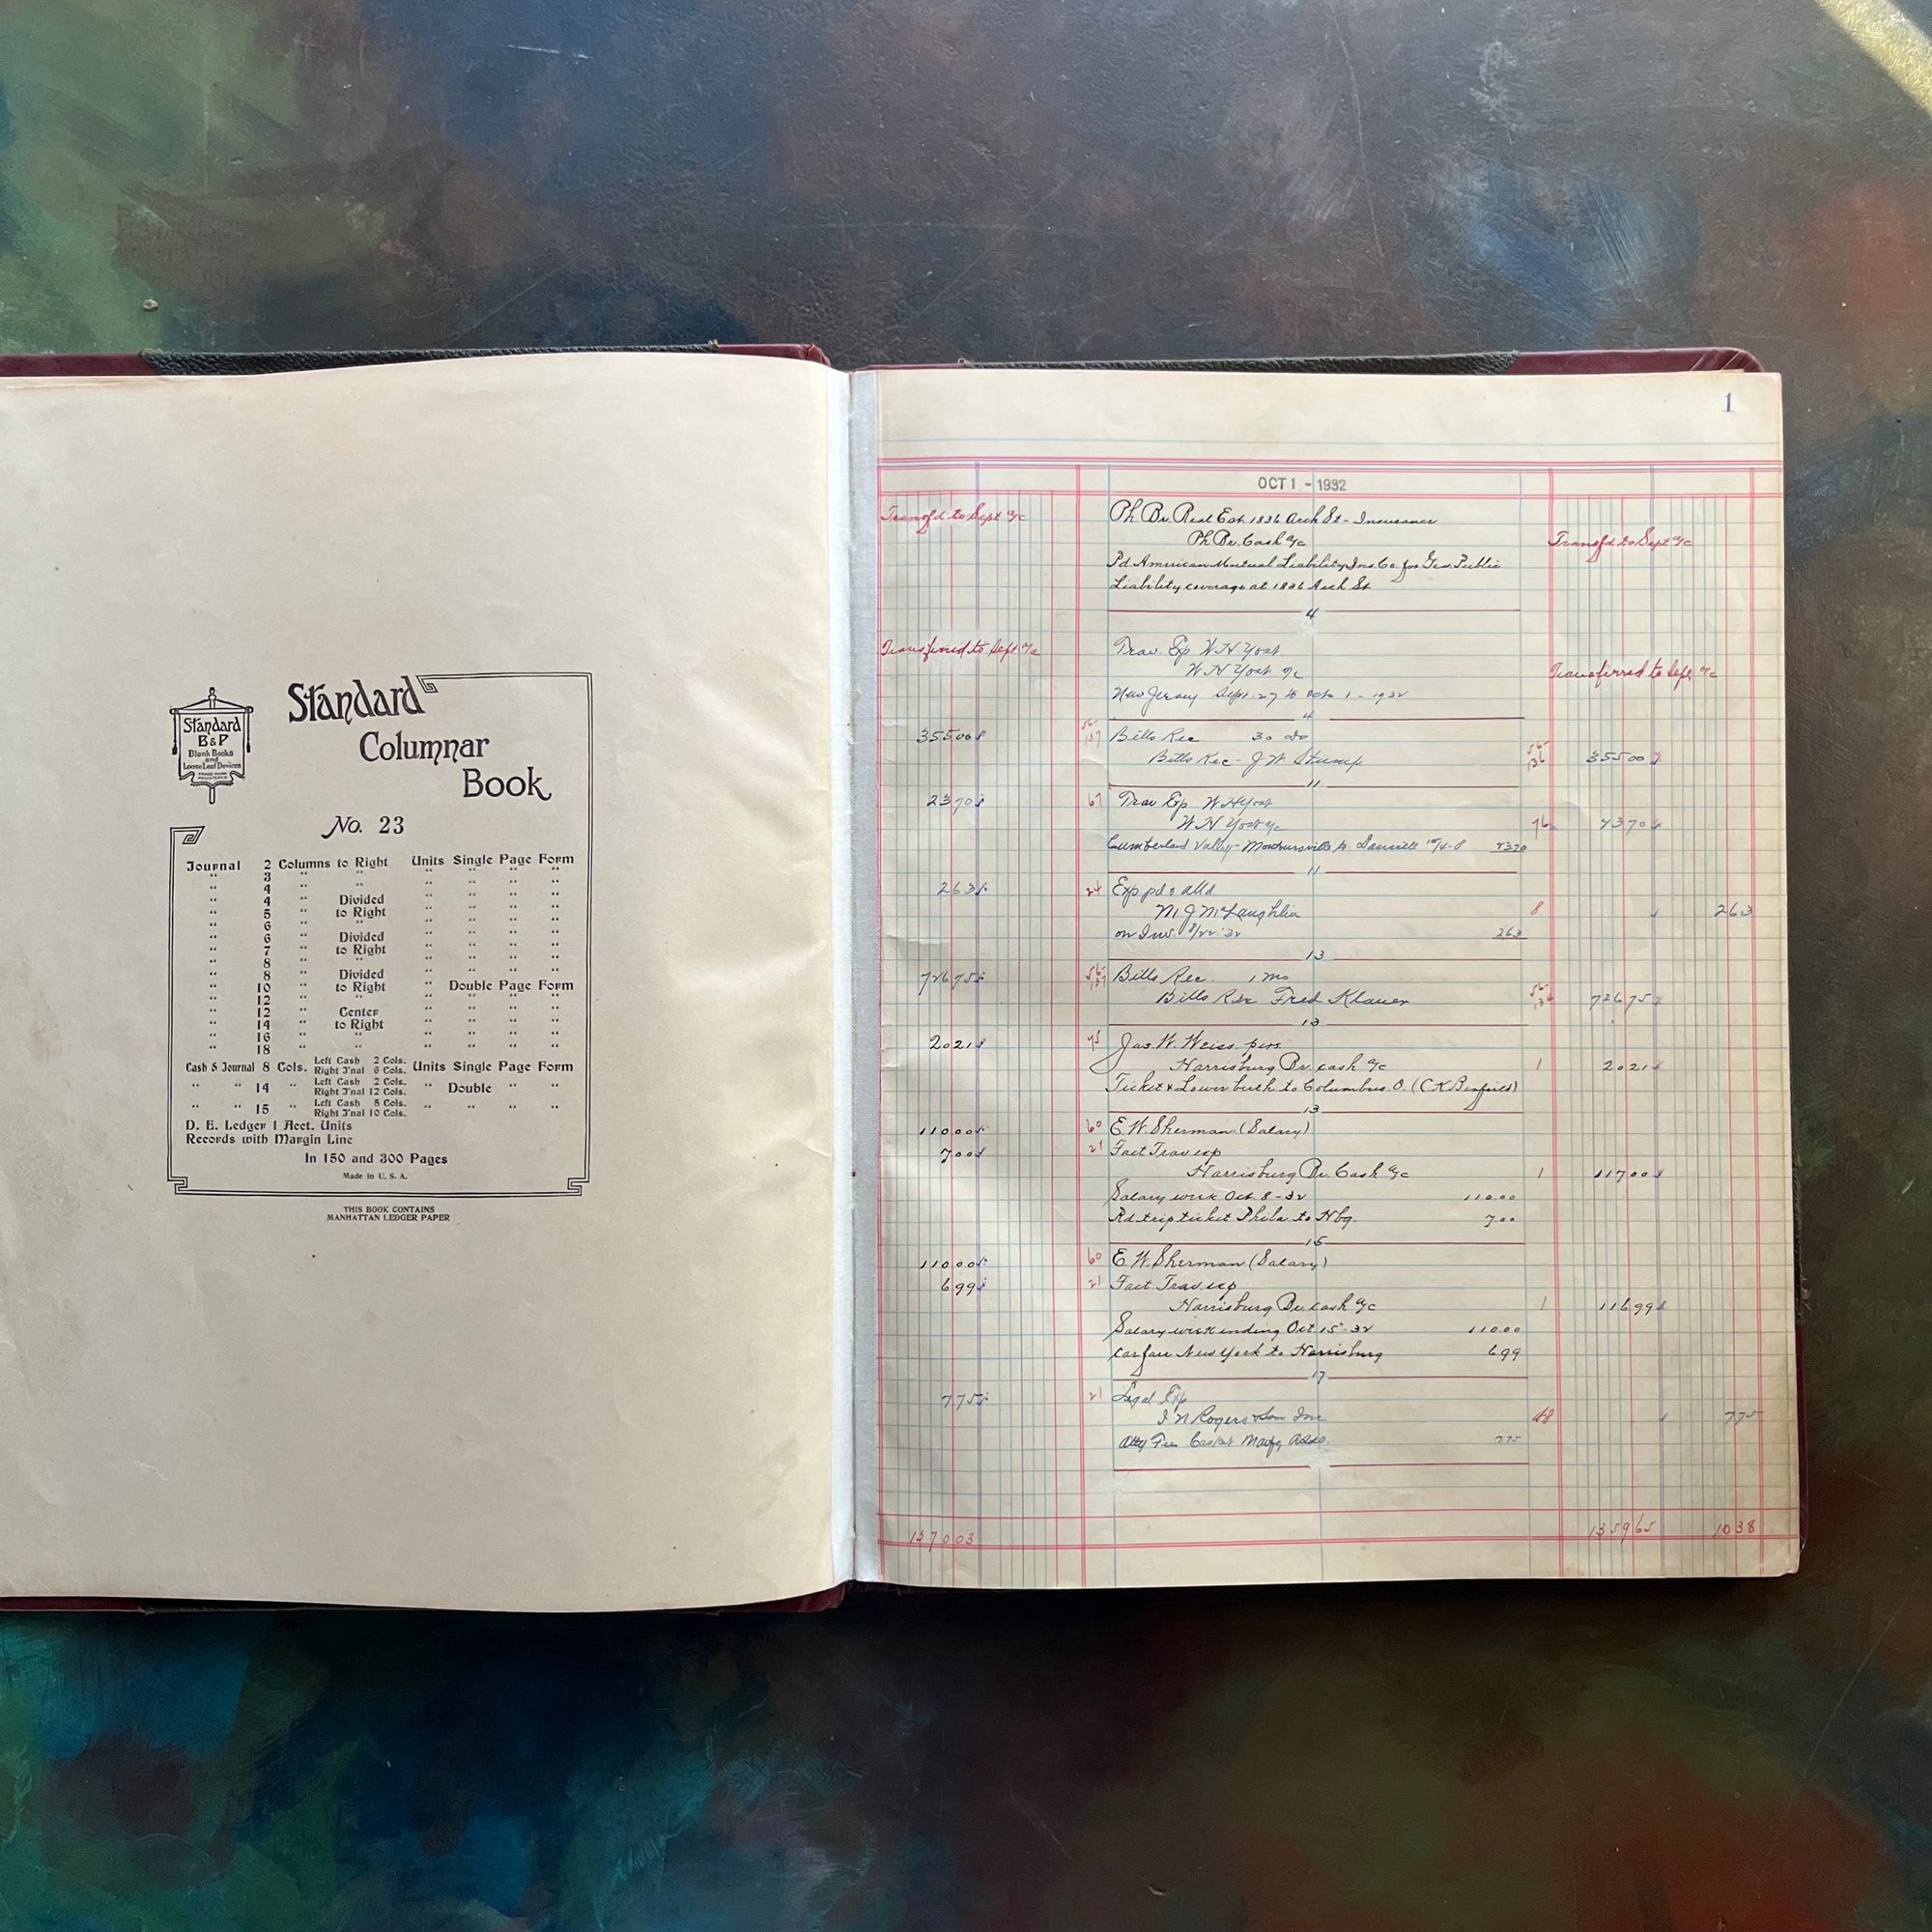 Standard
B & P
Blank Books
and
Loose Leaf Devices
TRADE MARK
REGISTERED
Standard
Columnar
Book
No. 23
Journal 2 Columns to Right Units Single Page Form
" 3 " " " " " "
" 4 " " " " " "
" 4 " Divided " " " "
" 5 " to Right " " " "
" 6 " " " " " "
" 6 " Divided " " " "
" 7 " to Right " " " "
" 8 " " " " " "
" 8 " Divided " " " "
" 10 " to Right " Double Page Form
" 12 " " " " " "
" 12 " Center " " " "
" 14 " to Right " " " "
" 16 " " " " " "
" 18 " " " " " "
Cash & Journal 8 Cols. Left Cash 2 Cols. Right J'nal 6 Cols. Units Single Page Form
" " 14 " Left Cash 2 Cols. Right J'nal 12 Cols. " Double " "
" " 15 " Left Cash 5 Cols. Right J'nal 10 Cols. " " " "
D. E. Ledger 1 Acct. Units
Records with Margin Line
In 150 and 300 Pages
Made in U. S. A.
THIS BOOK CONTAINS
MANHATTAN LEDGER PAPER
1
OCT 1 - 1932
Transfd to Sept a/c Ph. Br. Real Est. 1836 Arch St - Insurance
Ph Br. Cash a/c Transfd to Sept a/c
Pd American Mutual Liability Ins. Co. for Gen. Public
Liability coverage at 1836 Arch St
4
Transferred to Sept a/c Trav. Exp W H Yost
W H Yost a/c Transferred to Sept a/c
New Jersey Sept. 27 to Oct 1 - 1932
4
355 00 137 Bills Rec 30 da
Bills Rec - J W Stump 136 355 00
11
23 70 67 Trav Exp W H Yost
W H Yost a/c 76 23 70
Cumberland Valley - to 10/4-8 23 70
11
2 63 24 Exp pd & alld
M J McLaughlin 8 2 63
on Inv. 8/22/32 2 63
13
726 75 56 137 Bills Rec. 1 mo
Bills Rec Fred Klauer 56 136 726 75
13
20 21 75 Jas. W. Weiss pers
Harrisburg Br. cash a/c 1 20 21
Ticket & Lower berth to Columbus. O. (C K Benfield)
13
110 00 60 E. W. Sherman (Salary)
7 00 21 Fact Trav exp
Harrisburg Br. Cash a/c 1 117 00
Salary week Oct. 8 - 32 110.00
Rd trip ticket Phila. to Hbg. 7 00
15
110 00 60 E. W. Sherman (Salary)
6 99 21 Fact Trav exp
Harrisburg Br. cash a/c 1 116 99
Salary week ending Oct 15 - 32 110.00
Carfare New York to Harrisburg 6 99
17
7 75 21 Legal Exp
I N Rogers & Son Inc 48 7 75
Atty Fee Casket Manfg Asso. 7 75
1370 03 1359 65 10 38